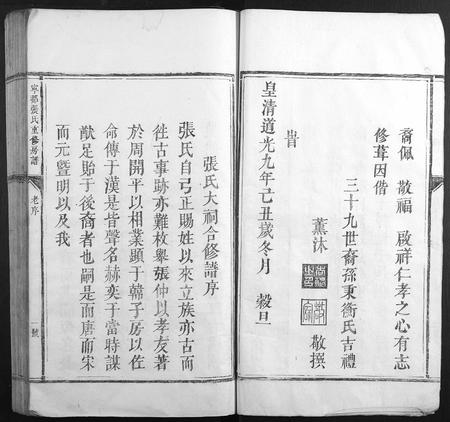 裔佩 敬福 啟祥仁孝之心有志
修葺因偕
三十九世裔孫秉衡氏吉禮
薰沐 敬撰
旹
皇清道光九年己丑歲冬月 穀旦
張氏大祠合修譜序
張氏自弓正賜姓以來立族亦古而
徃古事跡亦難枚舉張仲以孝友著
於周開平以相業顯于韓子房以佐
命傳于漢是皆聲名赫奕于當時謀
猷足貽于後裔者也嗣是而唐而宋
而元曁明以及我
寧都張氏重修房譜
老序
一號